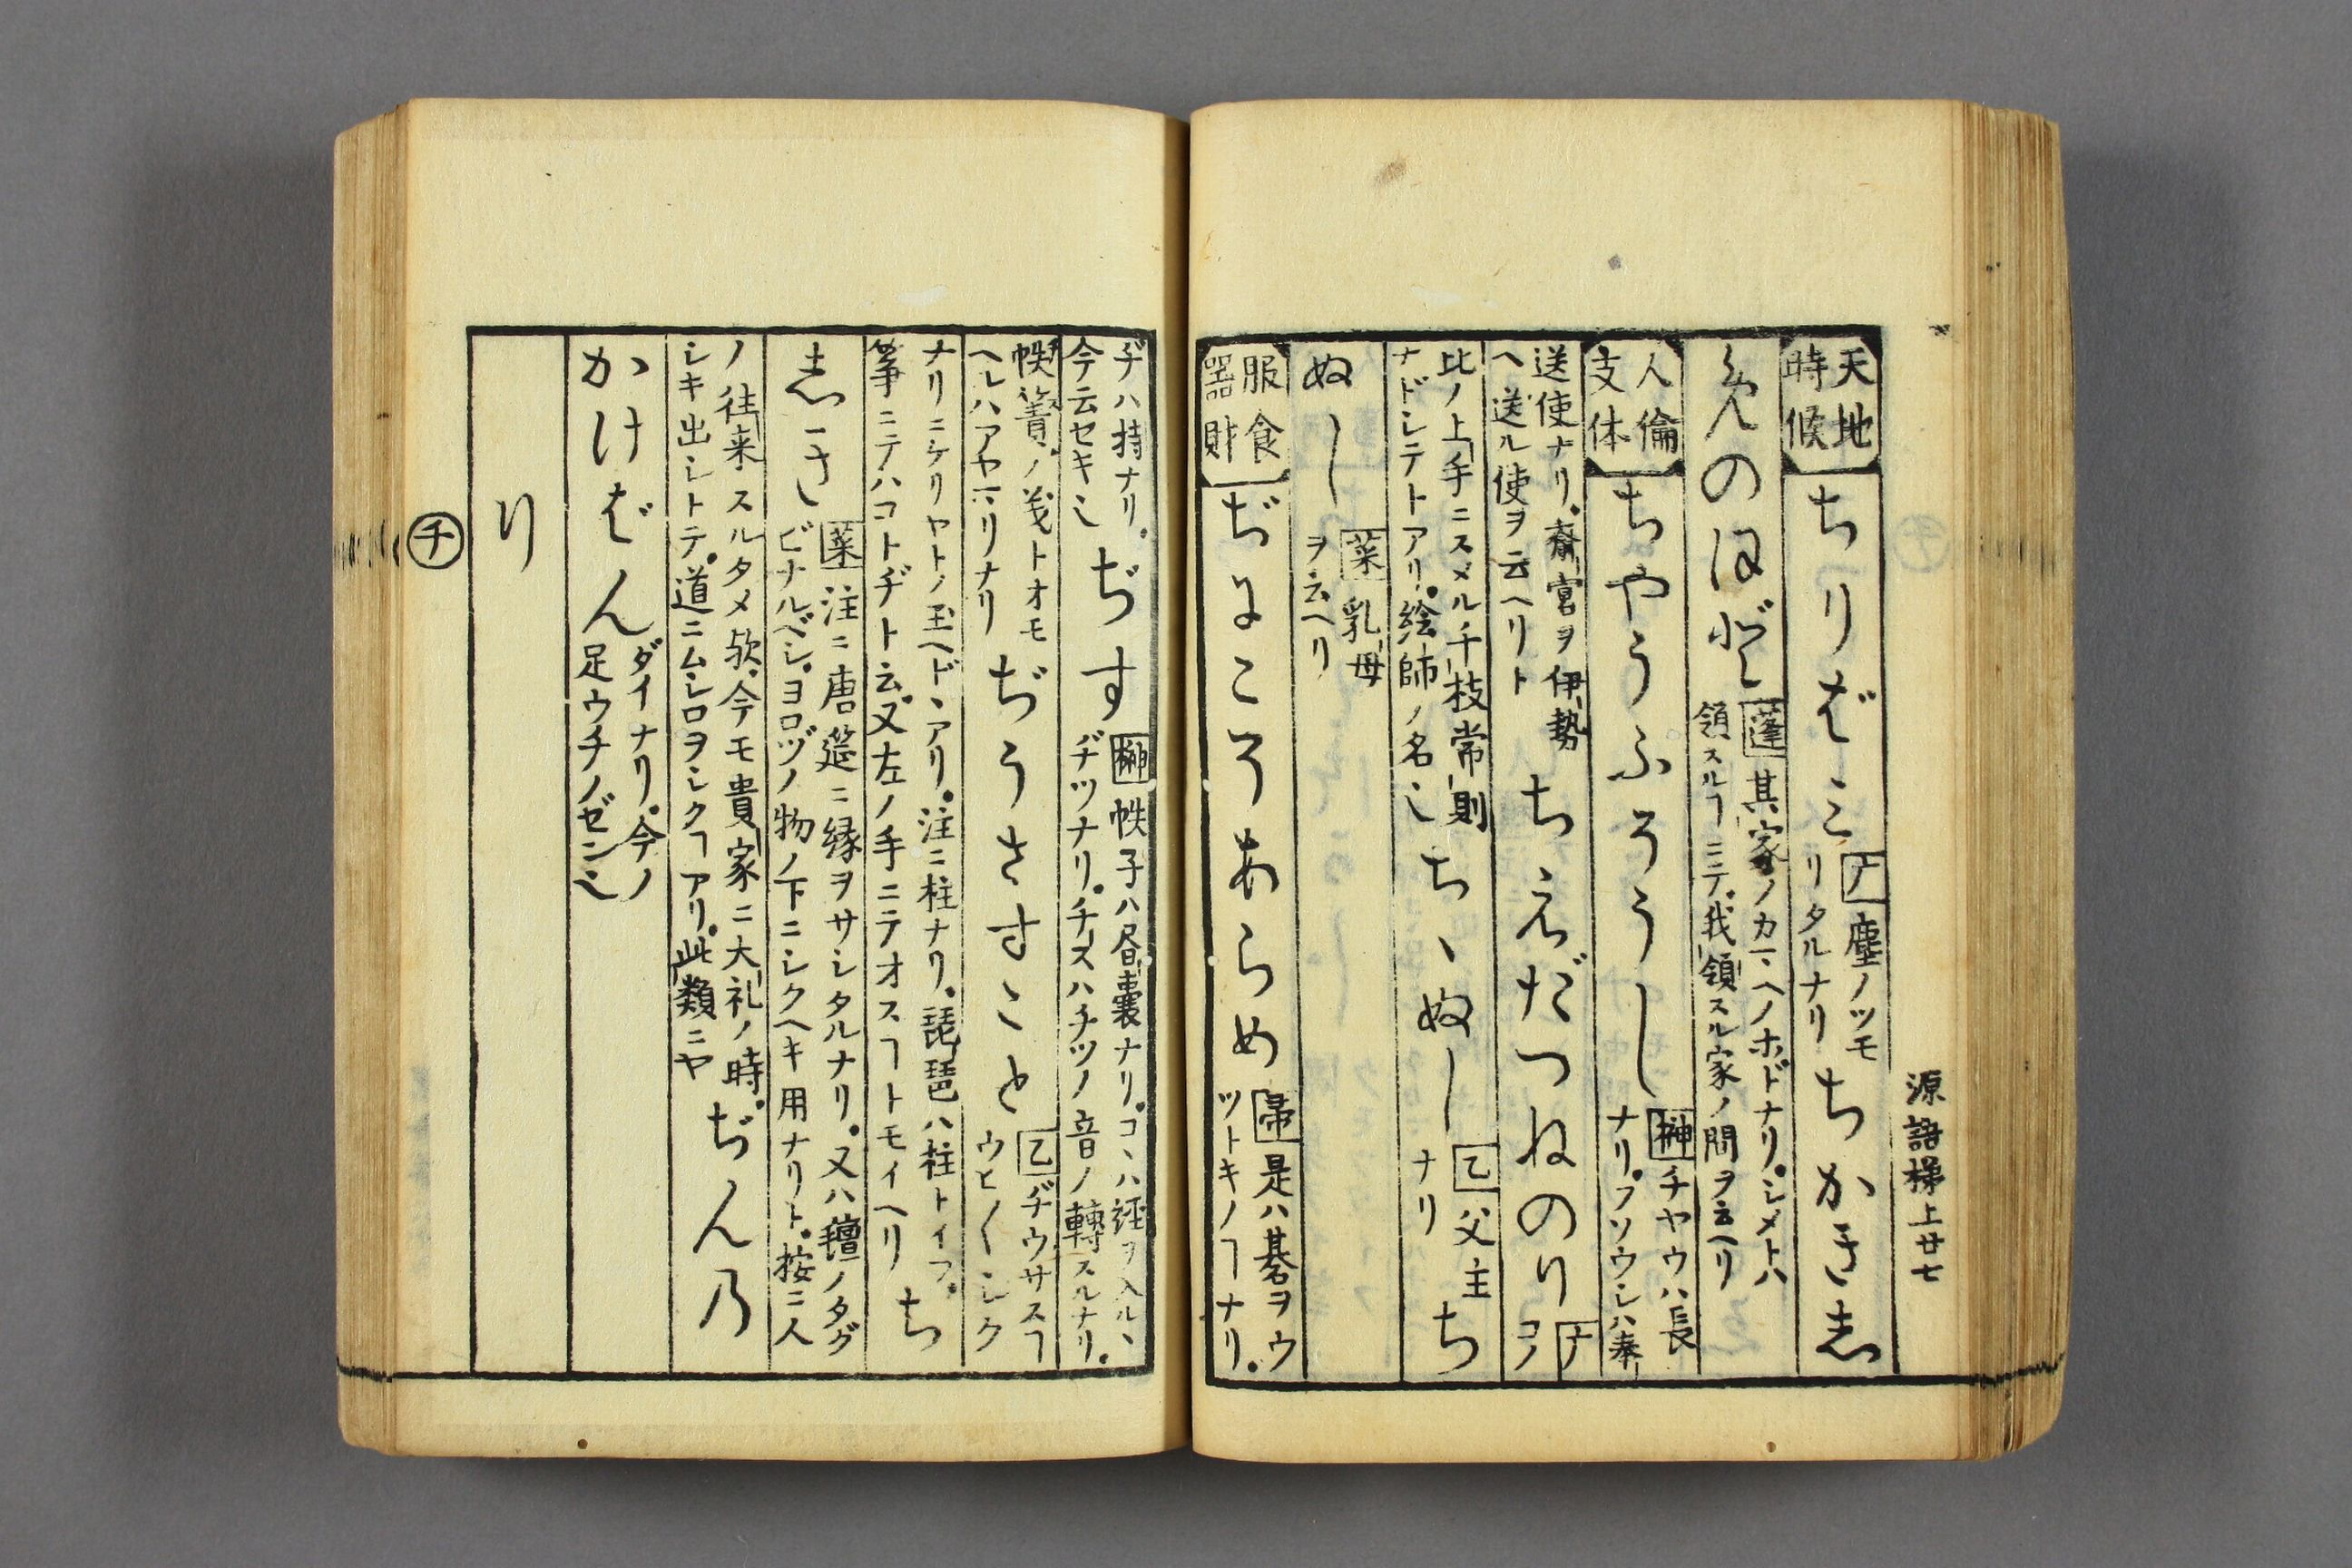 源語梯上廿七
天地
時候
ちりばミ
ナ塵ノツモ
リタルナリ
ちかきしめのほど
蓬其家ノカマヘノホドナリ。シメトハ
領スルヿニテ。我領スル家ノ間ヲ云ヘリ
人倫
支体
ちやうふそうし
榊チヤウハ長
ナリ。フソウシハ奉リ
送使ナリ。齋宮ヲ伊勢
ヘ送ル使ヲ云ヘリト
ちえだつねのり
ナ
コノ
比ノ上手ニスメル千枝常則
ナドシテトアリ。絵師ノ名也
ちゝぬし
乙父主
ナリ
ちぬし
菜乳母
ヲ云ヘリ
服食
器財
ぢにこそあらめ
帚是ハ碁ヲウ
ツトキノヿナリ。
ヂハ持ナリ。
今云セキ也
ぢす
榊帙子ハ昼嚢ナリ。コヽハ経ヲ入ルヽ
ヂツナリ。チスハチツノ音ノ轉スルナリ。
帙簀ノ義トオモ
ヘルハアヤマリナリ
ぢうさすこと
乙ヂウサスヿ
ウヒ〱シク
ナリニケリヤトノ玉ヘドヽアリ。注ニ柱ナリ。琵琶ハ柱トイフ。
箏ニテハコトヂト云。又左ノ手ニテオスヿトモイヘリ
ちしき
菜注ニ唐筵ニ縁ヲサシタルナリ。又ハ氈ノタグ
ビナルベシ。ヨロヅノ物ノ下ニシクヘキ用ナリト。按ニ人
ノ往来スルタメ歟。今モ貴家ニ大礼ノ時。
シキ出シトテ。道ニムシロヲシクヿアリ。此類ニヤ
ぢん乃
かけばん
ダイナリ。今ノ
足ウチノゼン也
り
チ